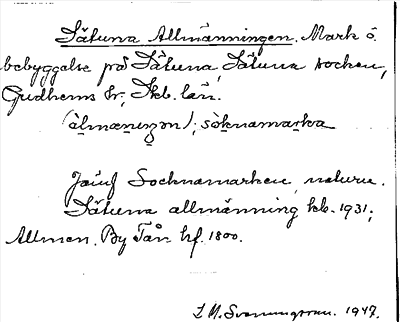 Sätuna Allmänningen. Mark o.
bebyggelse på Sätuna, Sätuna socken,
Gudhems hd, Skb. län.
(àlmæneŋən); sòknamarka
Jämf Socknamarken, naturn.
Sätuna allmänning kb. 1931;
Allmen. By Tån. hf. 1800.
I. M. Svenungsson. 1947.